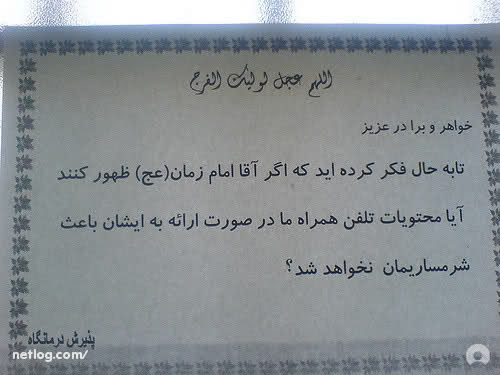 اللهم عجل لولیک الفرج
خواهر و برا در عزیز
تابه حال فکر کرده اید که اگر آقا امام زمان(عج) ظهور کنند
آیا محتویات تلفن همراه ما در صورت ارائه به ایشان باعث
شرمساریمان نخواهد شد؟
پذیرش درمانگاه
netlog.com/